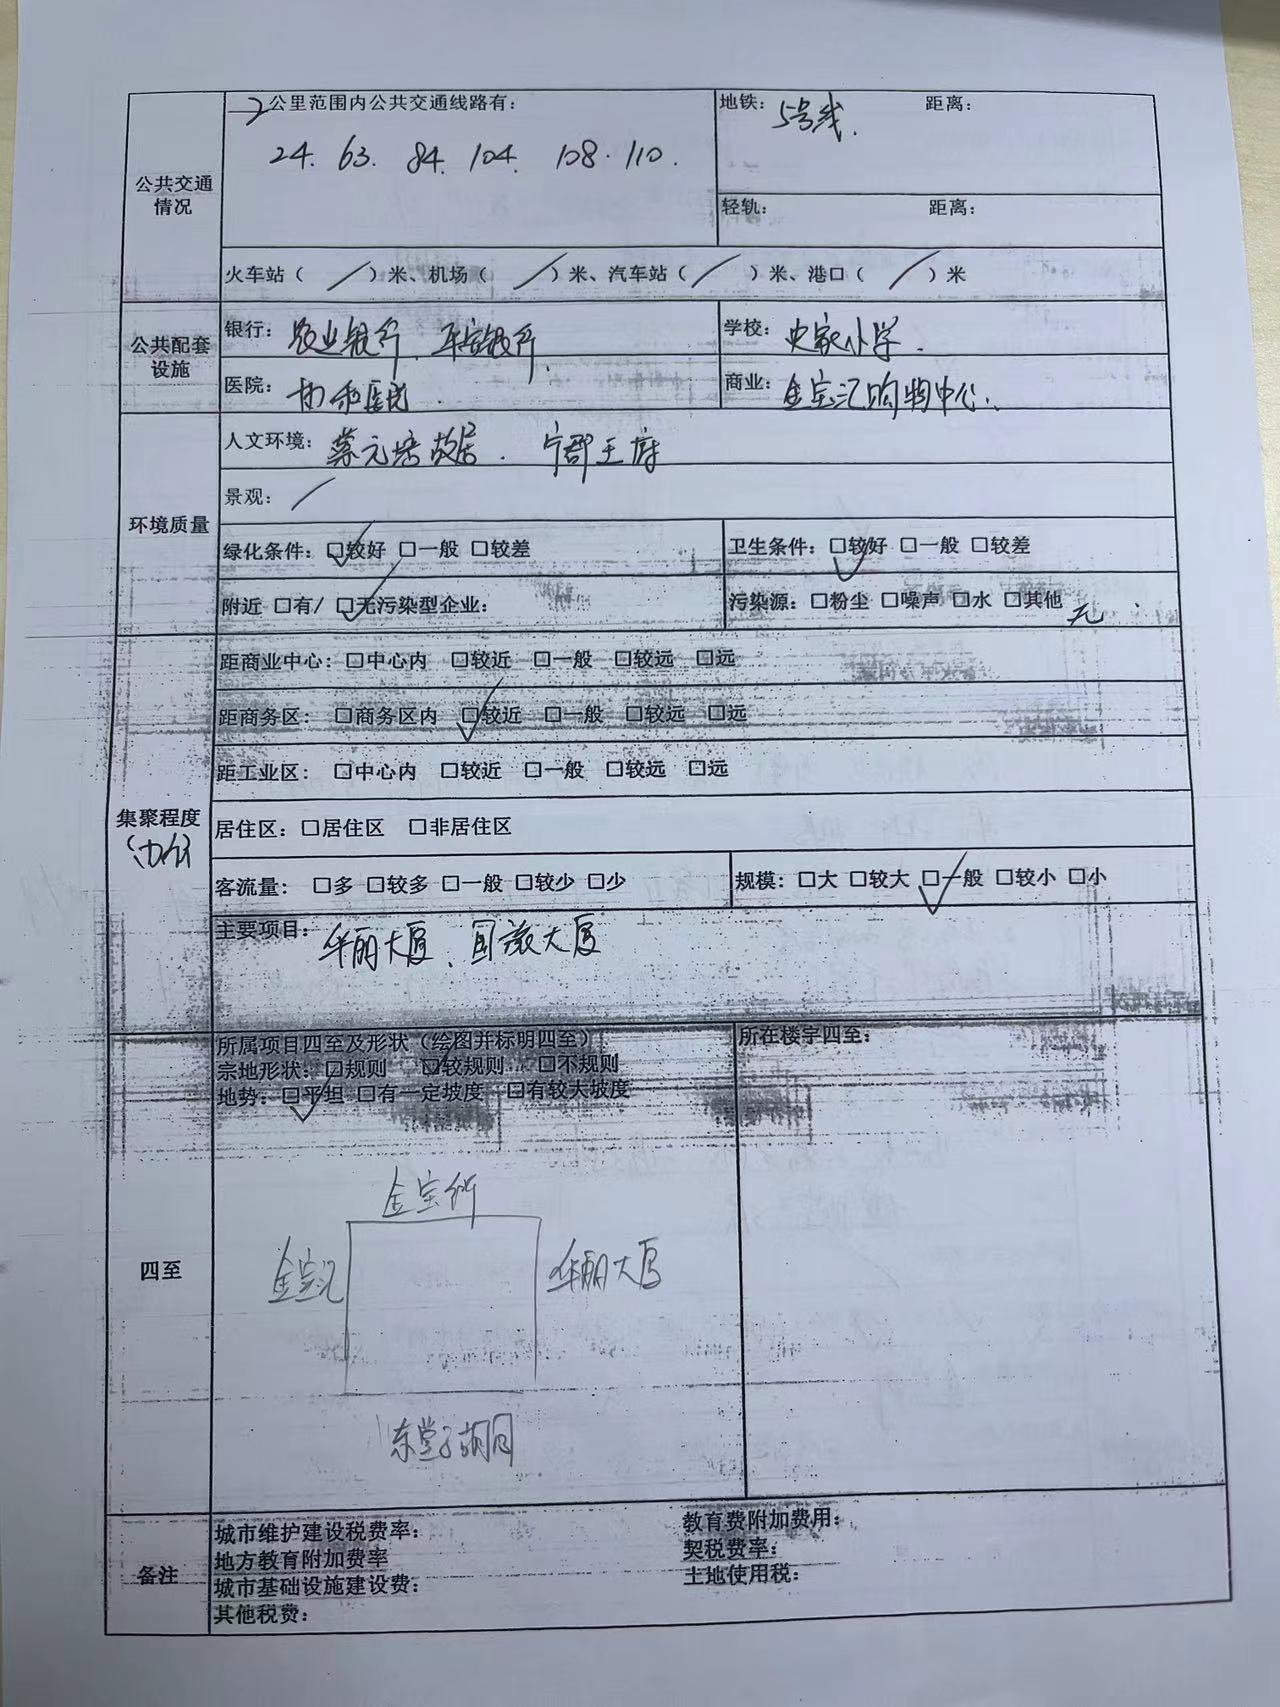 2公里范围内公共交通线路有：
24. 63. 84. 104. 108. 110.
地铁：5号线. 距离：
公共交通情况
轻轨： 距离：
火车站（／）米、机场（／）米、汽车站（／）米、港口（／）米
公共配套设施
银行：农业银行、平安银行.
学校：史家小学.
医院：协和医院.
商业：金宝汇购物中心.
环境质量
人文环境：蔡元培故居. 宁郡王府
景观：／
绿化条件：☑较好 □一般 □较差
卫生条件：☑较好 □一般 □较差
附近 □有/ ☑无污染型企业：
污染源：□粉尘 □噪声 □水 □其他 无
集聚程度
（办公
距商业中心：□中心内 □较近 □一般 □较远 □远
距商务区： □商务区内 ☑较近 □一般 □较远 □远
距工业区： □中心内 □较近 □一般 □较远 □远
居住区：□居住区 □非居住区
客流量： □多 □较多 □一般 □较少 □少
规模：□大 □较大 ☑一般 □较小 □小
主要项目：华丽大厦、国旅大厦
四至
所属项目四至及形状（绘图并标明四至）
宗地形状：□规则 ☑较规则 □不规则
地势：☑平坦 □有一定坡度 □有较大坡度
所在楼宇四至：
金宝街
金宝汇
华丽大厦
东堂子胡同
备注
城市维护建设税费率：
教育费附加费用：
地方教育附加费率
契税费率：
城市基础设施建设费：
土地使用税：
其他税费：